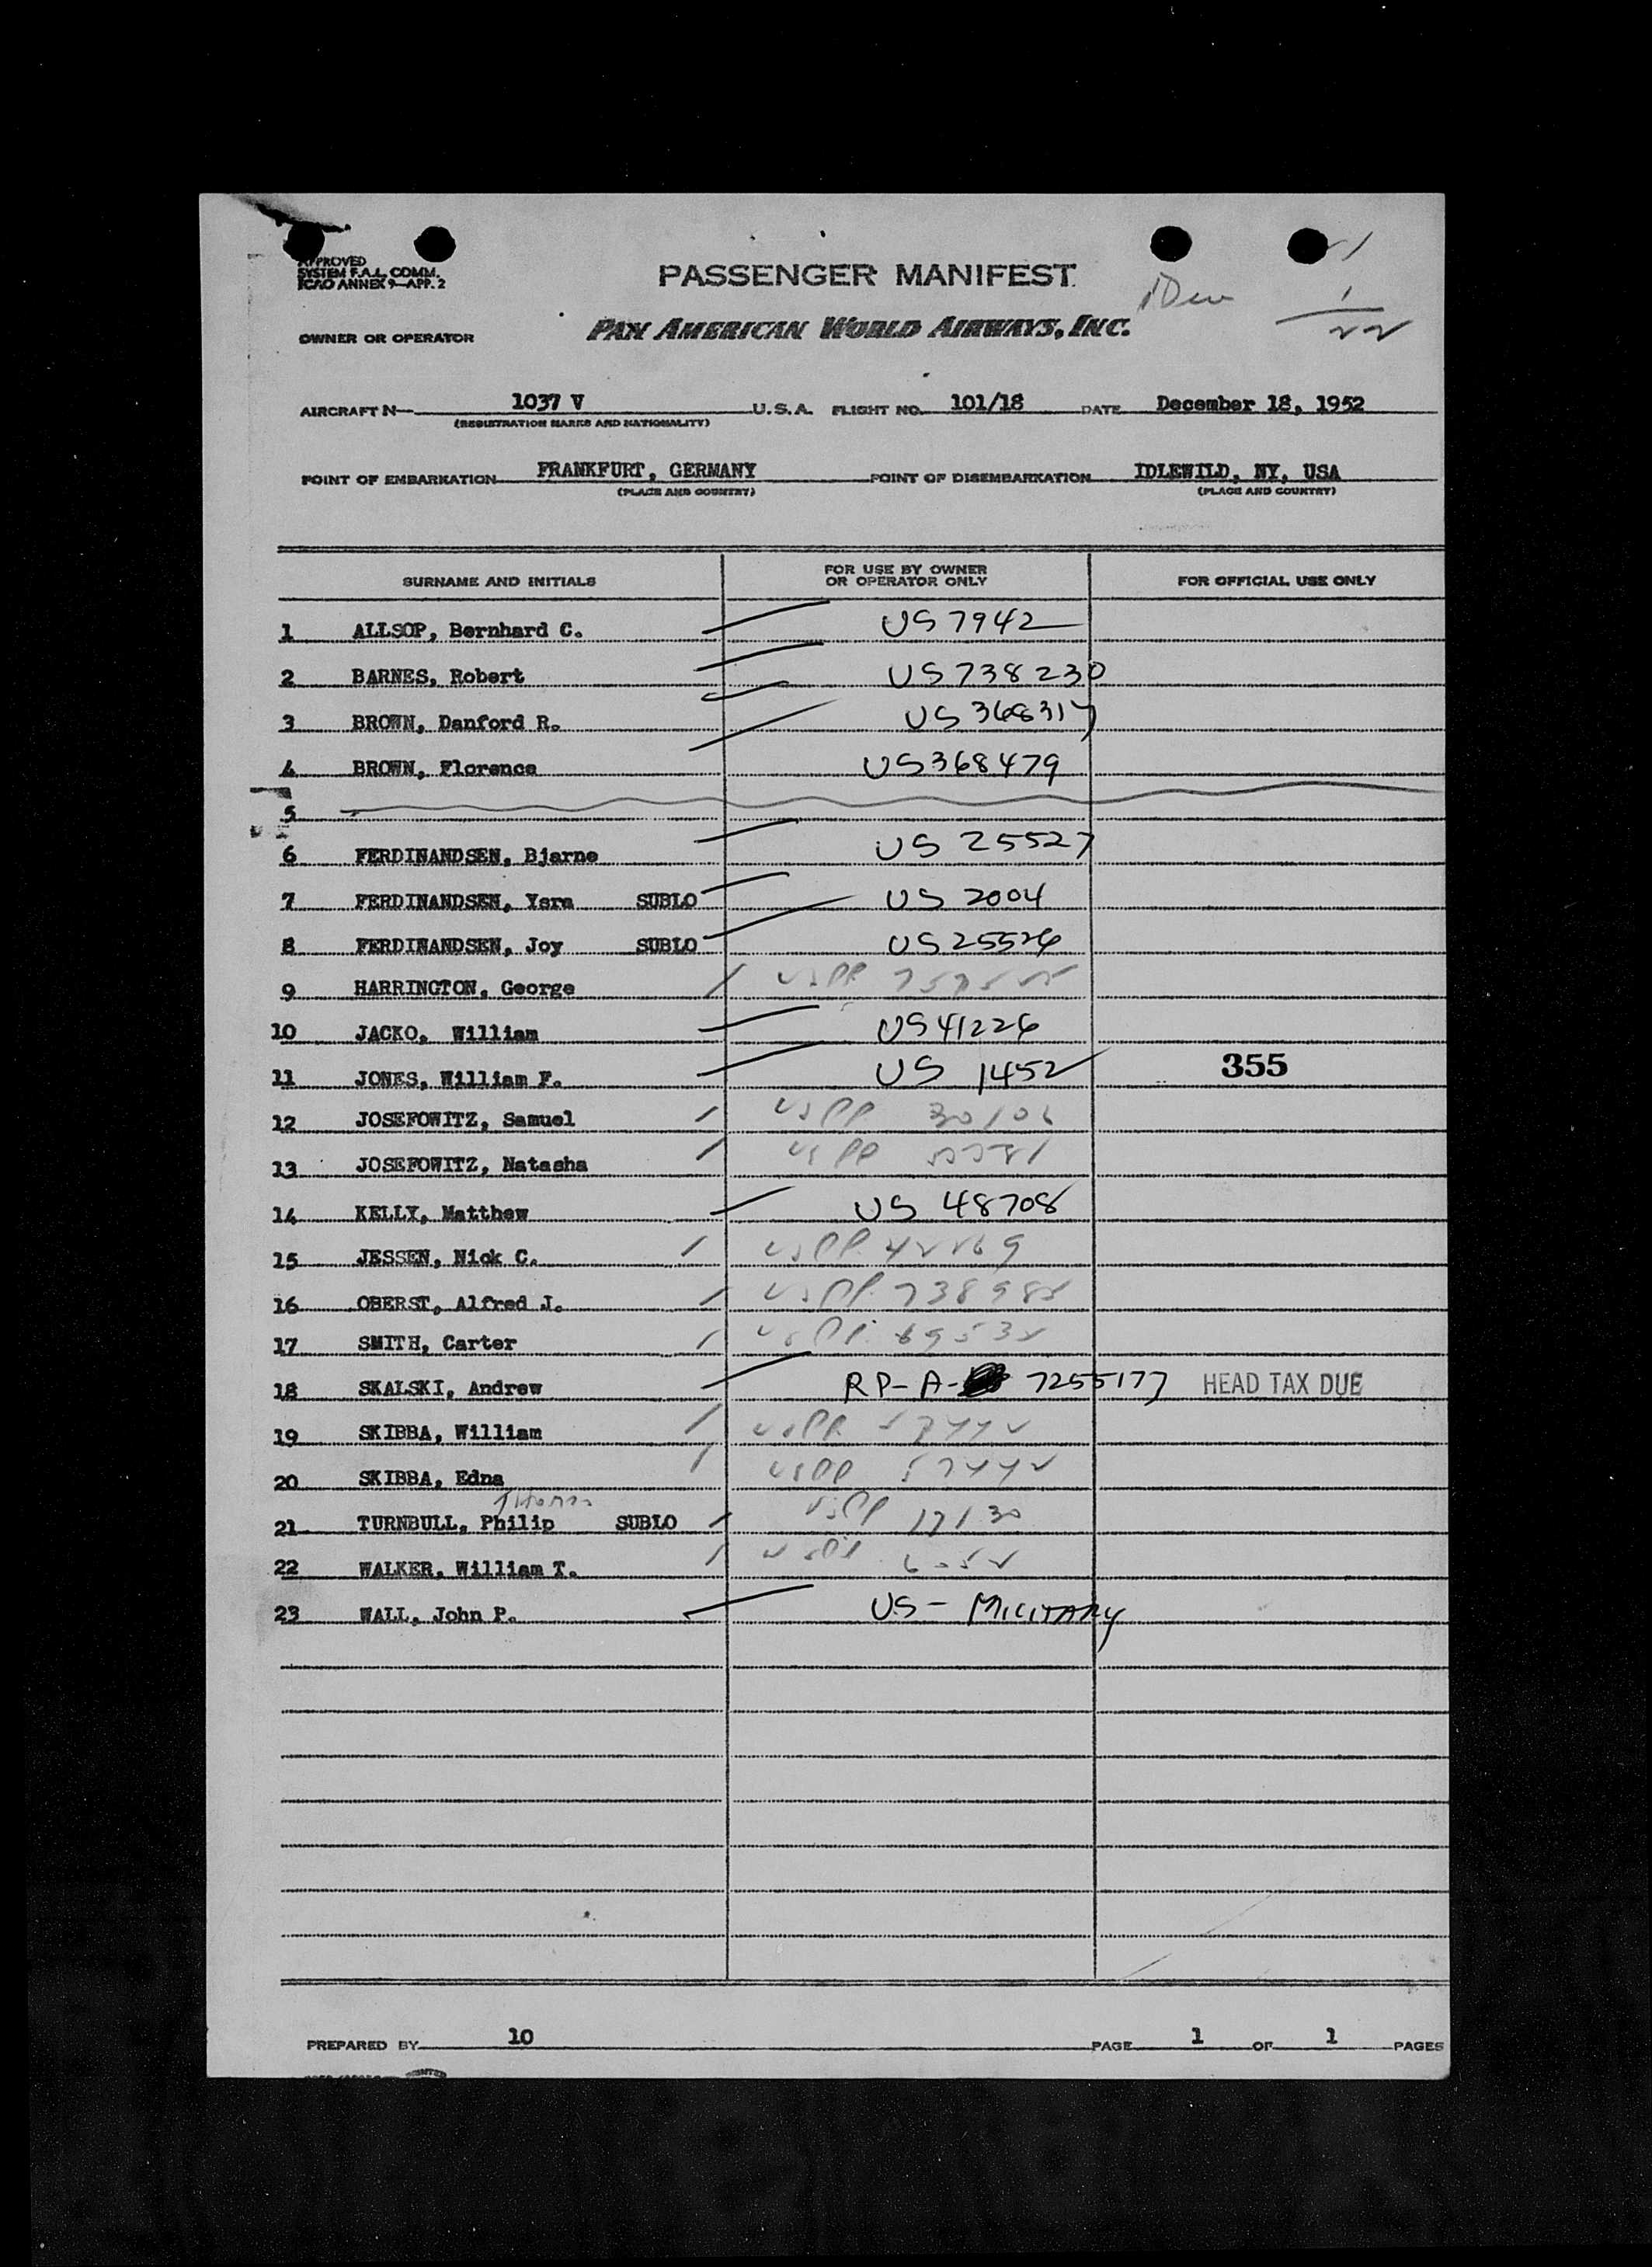 APPROVED
SYSTEM F.A.L. COMM.
ICAO ANNEX 9—APP. 2
PASSENGER MANIFEST
1
22
OWNER OR OPERATOR PAN AMERICAN WORLD AIRWAYS, INC.
AIRCRAFT N— 1037 V U.S.A. FLIGHT NO. 101/18 DATE December 18, 1952
(REGISTRATION MARKS AND NATIONALITY)
POINT OF EMBARKATION FRANKFURT, GERMANY POINT OF DISEMBARKATION IDLEWILD, NY, USA
(PLACE AND COUNTRY) (PLACE AND COUNTRY)
SURNAME AND INITIALS FOR USE BY OWNER OR OPERATOR ONLY FOR OFFICIAL USE ONLY
1 ALLSOP, Bernhard C. US 7942
2 BARNES, Robert US 738230
3 BROWN, Danford R. US 368317
4 BROWN, Florence US 368479
5
6 FERDINANDSEN, Bjarne US 25527
7 FERDINANDSEN, Vera SUBLO US 2004
8 FERDINANDSEN, Joy SUBLO US 25526
9 HARRINGTON, George USPP
10 JACKO, William US 41226
11 JONES, William F. US 1452 355
12 JOSEFOWITZ, Samuel USPP 30106
13 JOSEFOWITZ, Natasha USPP
14 KELLY, Matthew US 48708
15 JESSEN, Nick C. USPP 42269
16 OBERST, Alfred J. USPP 738982
17 SMITH, Carter USPP 69532
18 SKALSKI, Andrew RP-A- 7255177 HEAD TAX DUE
19 SKIBBA, William USPP
20 SKIBBA, Edna USPP 57442
21 TURNBULL, Philip SUBLO USPP 17130
22 WALKER, William T. USPP
23 WALL, John P. US - MILITARY
PREPARED BY 10 PAGE 1 OF 1 PAGES